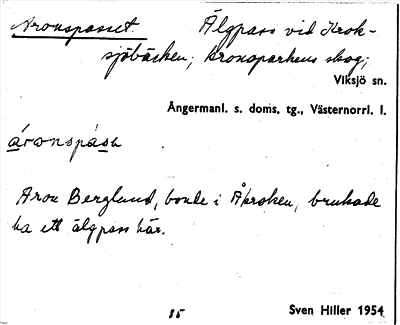 Aronspasset. Älgpass vid Krok-
sjöbäcken; kronoparkens skog;
Viksjö sn.
Ångermanl. s. doms. tg., Västernorrl. l.
Aron Berglund, bonde i Åkroken, brukade
ha ett älgpass här.
85
Sven Hiller 1954